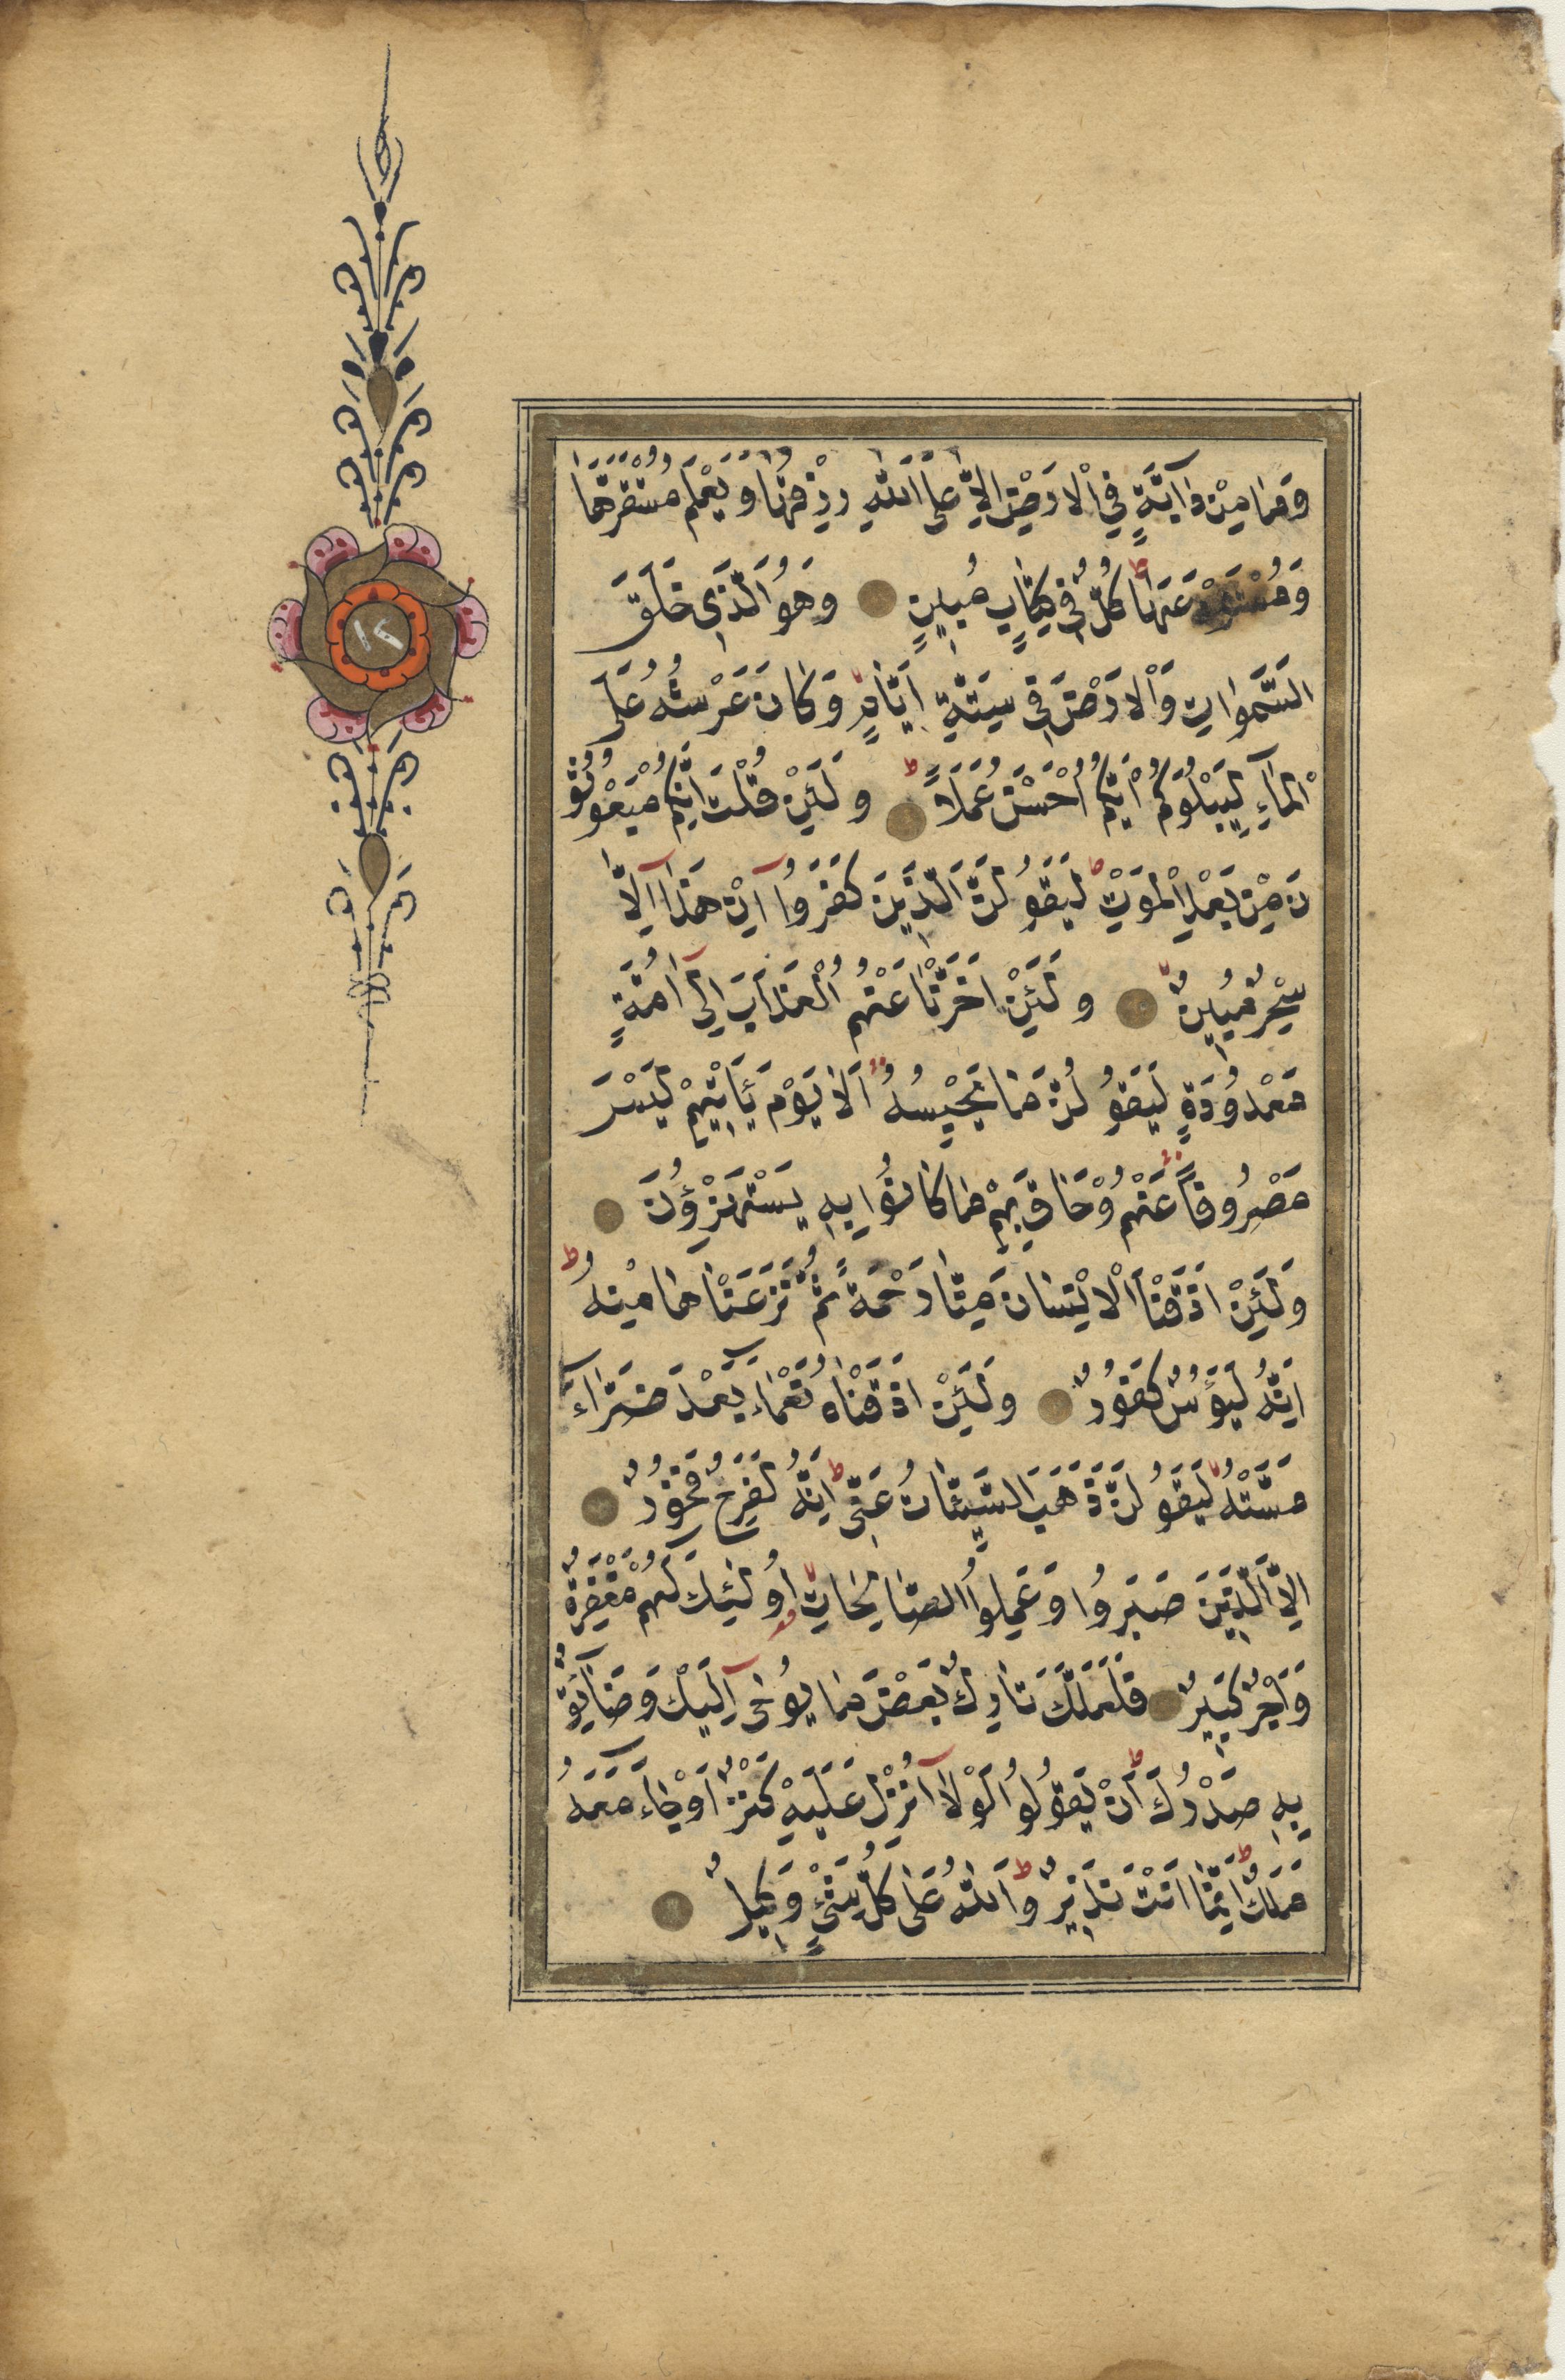 وَمَا مِنْ دَآبَّةٍ فِي الْاَرْضِ اِلَّا عَلَى اللّٰهِ رِزْقُهَا وَيَعْلَمُ مُسْتَقَرَّهَا
وَمُسْتَوْدَعَهَا كُلٌّ فِي كِتَابٍ مُبِينٍ وَهُوَ الَّذِي خَلَقَ
السَّمٰوَاتِ وَالْاَرْضَ فِي سِتَّةِ اَيَّامٍ وَكَانَ عَرْشُهُ عَلَى
الْمَاءِ لِيَبْلُوَكُمْ اَيُّكُمْ اَحْسَنُ عَمَلًا وَلَئِنْ قُلْتَ اِنَّكُمْ مَبْعُوثُو
نَ مِنْ بَعْدِ الْمَوْتِ لَيَقُولَنَّ الَّذِينَ كَفَرُوا اِنْ هٰذَا اِلَّا
سِحْرٌ مُبِينٌ وَلَئِنْ اَخَّرْنَا عَنْهُمُ الْعَذَابَ اِلٰٓى اُمَّةٍ
مَعْدُودَةٍ لَيَقُولُنَّ مَا يَحْبِسُهُ اَلَا يَوْمَ يَأْتِيهِمْ لَيْسَ
مَصْرُوفًا عَنْهُمْ وَحَاقَ بِهِمْ مَا كَانُوا بِهِ يَسْتَهْزِؤُنَ
وَلَئِنْ اَذَقْنَا الْاِنْسَانَ مِنَّا رَحْمَةً ثُمَّ نَزَعْنَاهَا مِنْهُ
اِنَّهُ لَيَؤُسٌ كَفُورٌ وَلَئِنْ اَذَقْنَاهُ نَعْمَاءَ بَعْدَ ضَرَّاءَ
مَسَّتْهُ لَيَقُولَنَّ ذَهَبَ السَّيِّئَاتُ عَنِّي اِنَّهُ لَفَرِحٌ فَخُورٌ
اِلَّا الَّذِينَ صَبَرُوا وَعَمِلُوا الصَّالِحَاتِ اُولٰئِكَ لَهُمْ مَغْفِرَةٌ
وَاَجْرٌ كَبِيرٌ فَلَعَلَّكَ تَارِكٌ بَعْضَ مَا يُوحٰى اِلَيْكَ وَضَائِقٌ
بِهِ صَدْرُكَ اَنْ يَقُولُوا لَوْلَا اُنْزِلَ عَلَيْهِ كَنْزٌ اَوْ جَاءَ مَعَهُ
مَلَكٌ اِنَّمَا اَنْتَ نَذِيرٌ وَاللّٰهُ عَلٰى كُلِّ شَيْءٍ وَكِيلٌ